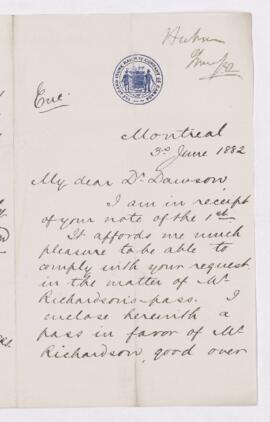 THE GRAND TRUNK RAILWAY COMPANY OF CANADA
Enc.
Montreal
3d June 1882
My dear Dr. Dawson,
I am in receipt
of your note of the 1st.
It affords me much
pleasure to be able to
comply with your request
in the matter of Mr
Richardson's pass. I
enclose herewith a
pass in favor of Mr
Richardson, good over